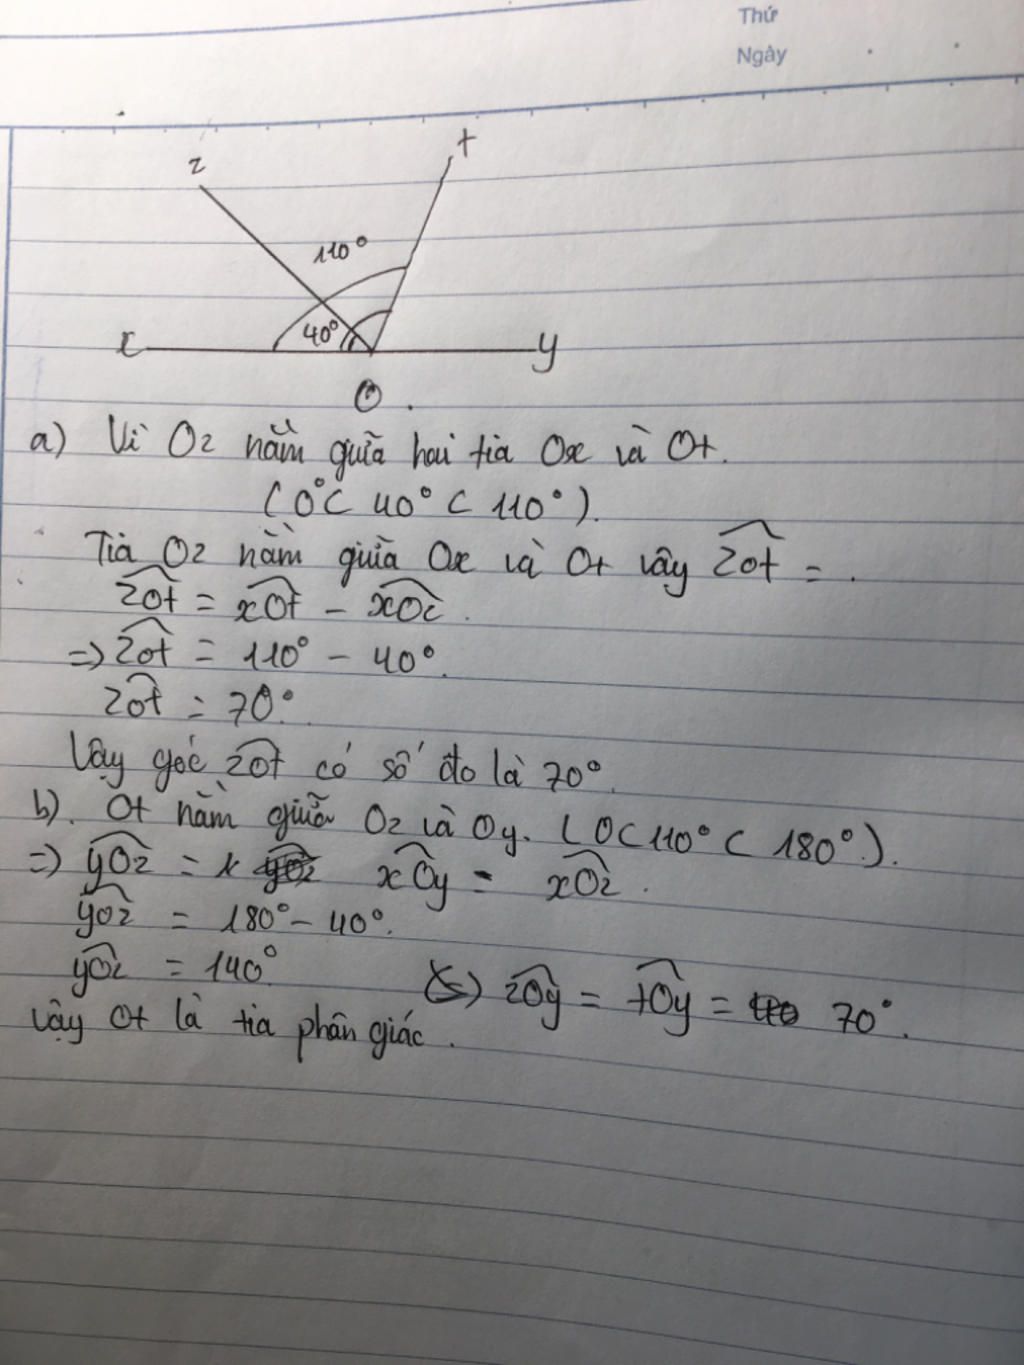 Thứ
Ngày
z
t
110°
40°
x
y
O
a) Vì Oz nằm giữa hai tia Ox và Ot.
(0° < 40° < 110°).
Tia Oz nằm giữa Ox và Ot vậy zOt = .
zOt = xOt - xOz.
=> zOt = 110° - 40°.
zOt = 70°.
Vậy góc zOt có số đo là 70°.
b). Ot nằm giữa Oz và Oy. (0 < 110° < 180°).
=> yOz = xOy - xOz.
yOz = 180° - 40°.
yOz = 140°
zOy = tOy = 70°.
Vậy Ot là tia phân giác.